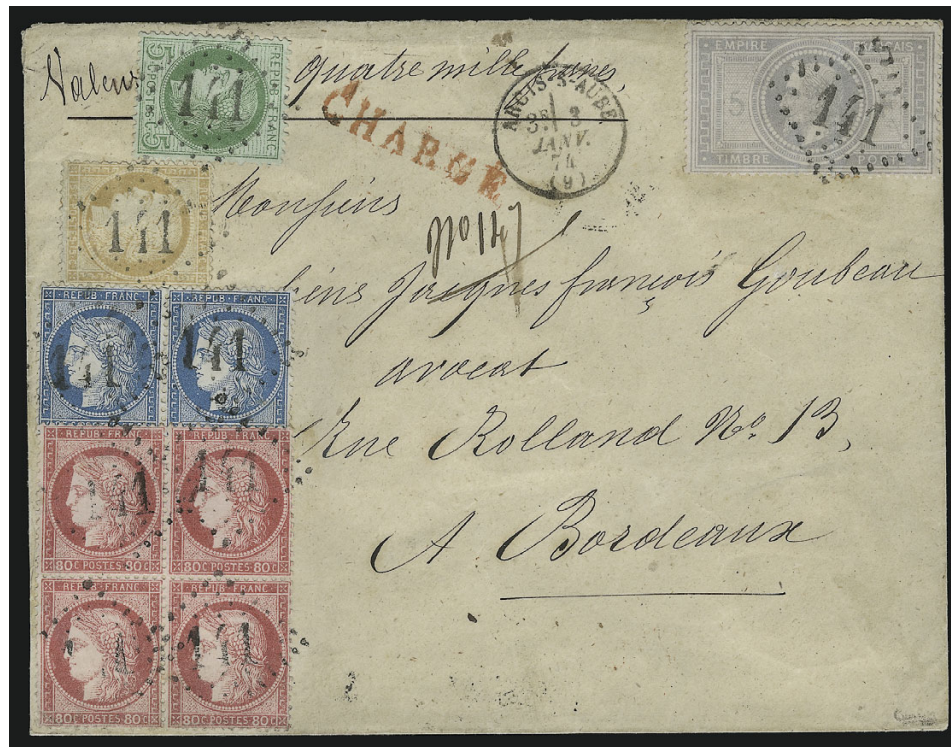 Valeur quatre mille francs
CHARGÉ
ARCIS-S-AUBE
3E 3
JANV.
74
(9)
EMPIRE FRANÇAIS
5
TIMBRE POSTE
141
5 C POSTES 5
REPUB FRANC
141
141
Monsieur
Jacques françois Goubeau
avocat
Rue Rolland No. 13,
A Bordeaux
REPUB FRANC
REPUB FRANC
141
141
REPUB FRANC
REPUB FRANC
141
141
80 C POSTES 80 C
80 C POSTES 80 C
REPUB FRANC
REPUB FRANC
141
80 C POSTES 80 C
80 C POSTES 80 C